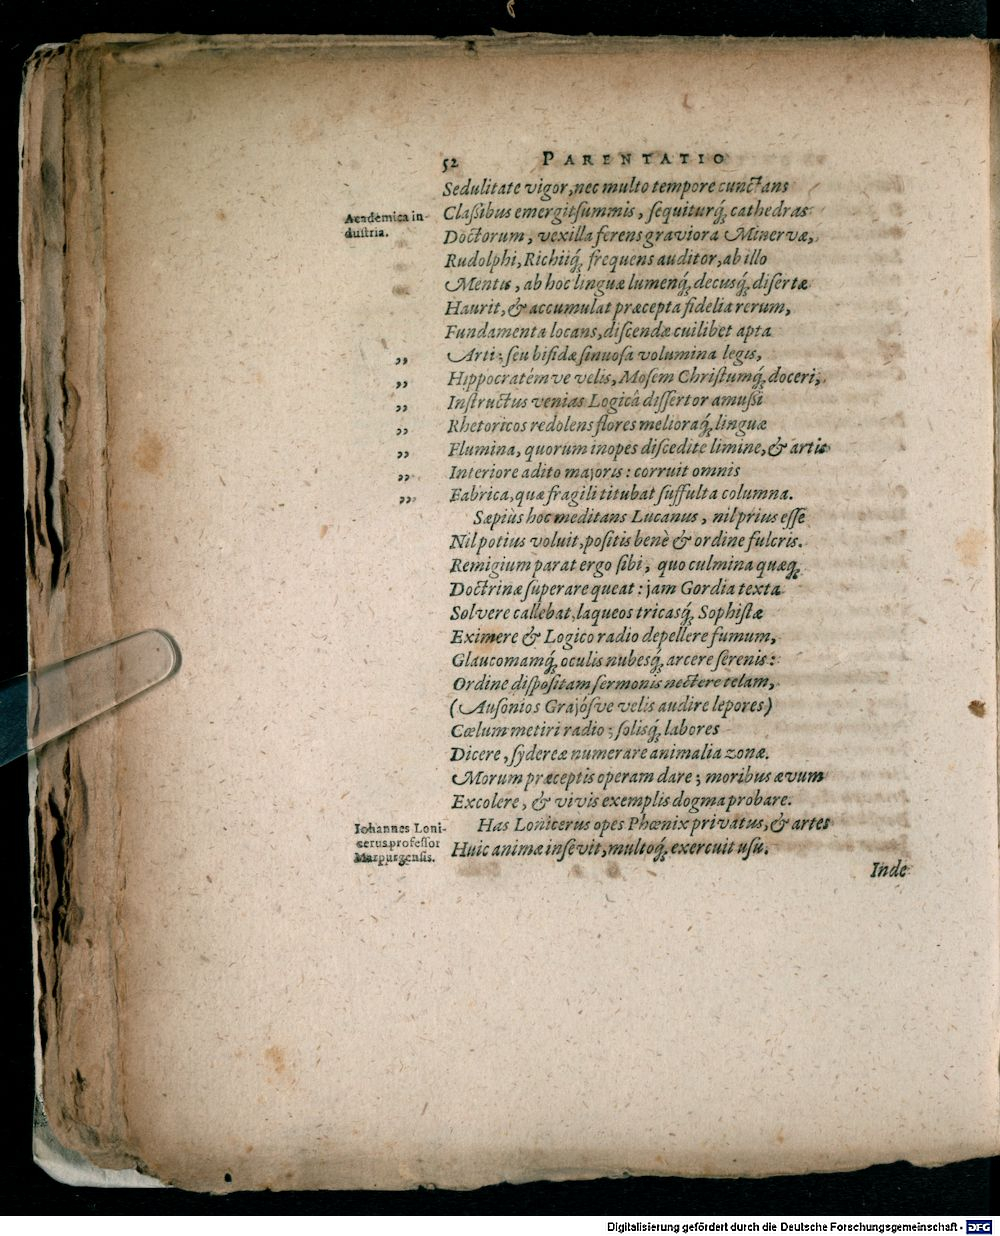 52 PARENTATIO
Sedulitate vigor, nec multo tempore cunctans
Academica in-
dustria.
Claſſibus emergit ſummis, ſequiturq́; cathedras
Doctorum, vexilla ferens graviora Minervæ,
Rudolphi, Richiiq́; frequens auditor, ab illo
Mentis, ab hoc linguæ lumenq́; decusq́; diſertæ
Haurit, & accumulat præcepta fidelia rerum,
Fundamenta locans, diſcendæ cuilibet apta
„ Arti; ſeu bifidæ ſinuoſa volumina legis,
„ Hippocratémve velis, Moſem Chriſtumq́; doceri,
„ Inſtructus venias Logicâ diſſertor amuſſi
„ Rhetoricos redolens flores melioraq́; linguæ
„ Flumina, quorum inopes diſcedite limine, & artis
„ Interiore adito majoris: corruit omnis
„ Fabrica, quæ fragili titubat ſuffulta columna.
Sæpiùs hoc meditans Lucanus, nil prius eſſe
Nil potius voluit, poſitis benè & ordine fulcris.
Remigium parat ergo ſibi, quo culmina quæq;
Doctrinæ ſuperare queat: jam Gordia texta
Solvere callebat, laqueos tricasq́; Sophiſtæ
Eximere & Logico radio depellere fumum,
Glaucomamq́; oculis nubesq́; arcere ſerenis:
Ordine diſpoſitam ſermonis nectere telam,
(Auſonios Grajóſve velis audire lepores)
Cœlum metiri radio; ſolisq́; labores
Dicere, ſydereæ numerare animalia zonæ.
Morum præceptis operam dare; moribus ævum
Excolere, & vivis exemplis dogma probare.
Iohannes Loni-
cerus profeſſor
Marpurgenſis.
Has Lonicerus opes Phœnix privatus, & artes
Huic animæ inſevit, multoq́; exercuit uſu.
Inde
Digitalisierung gefördert durch die Deutsche Forschungsgemeinschaft - DFG